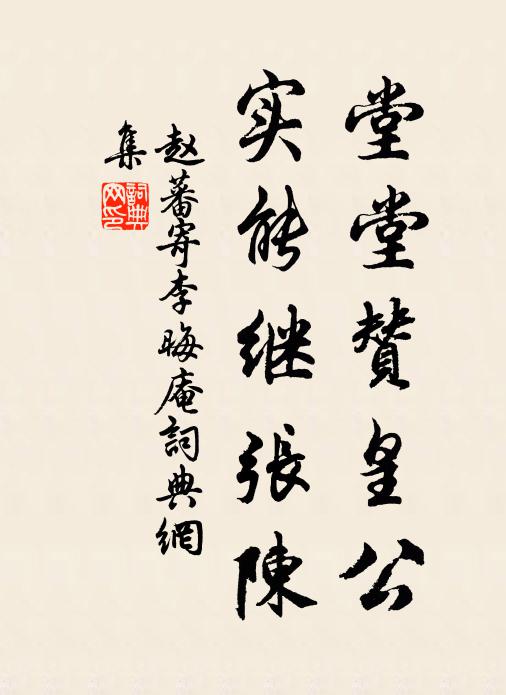 堂堂贊皇公
实能继張陳
赵蕃寄李晦庵詞典網
集
詞典网印